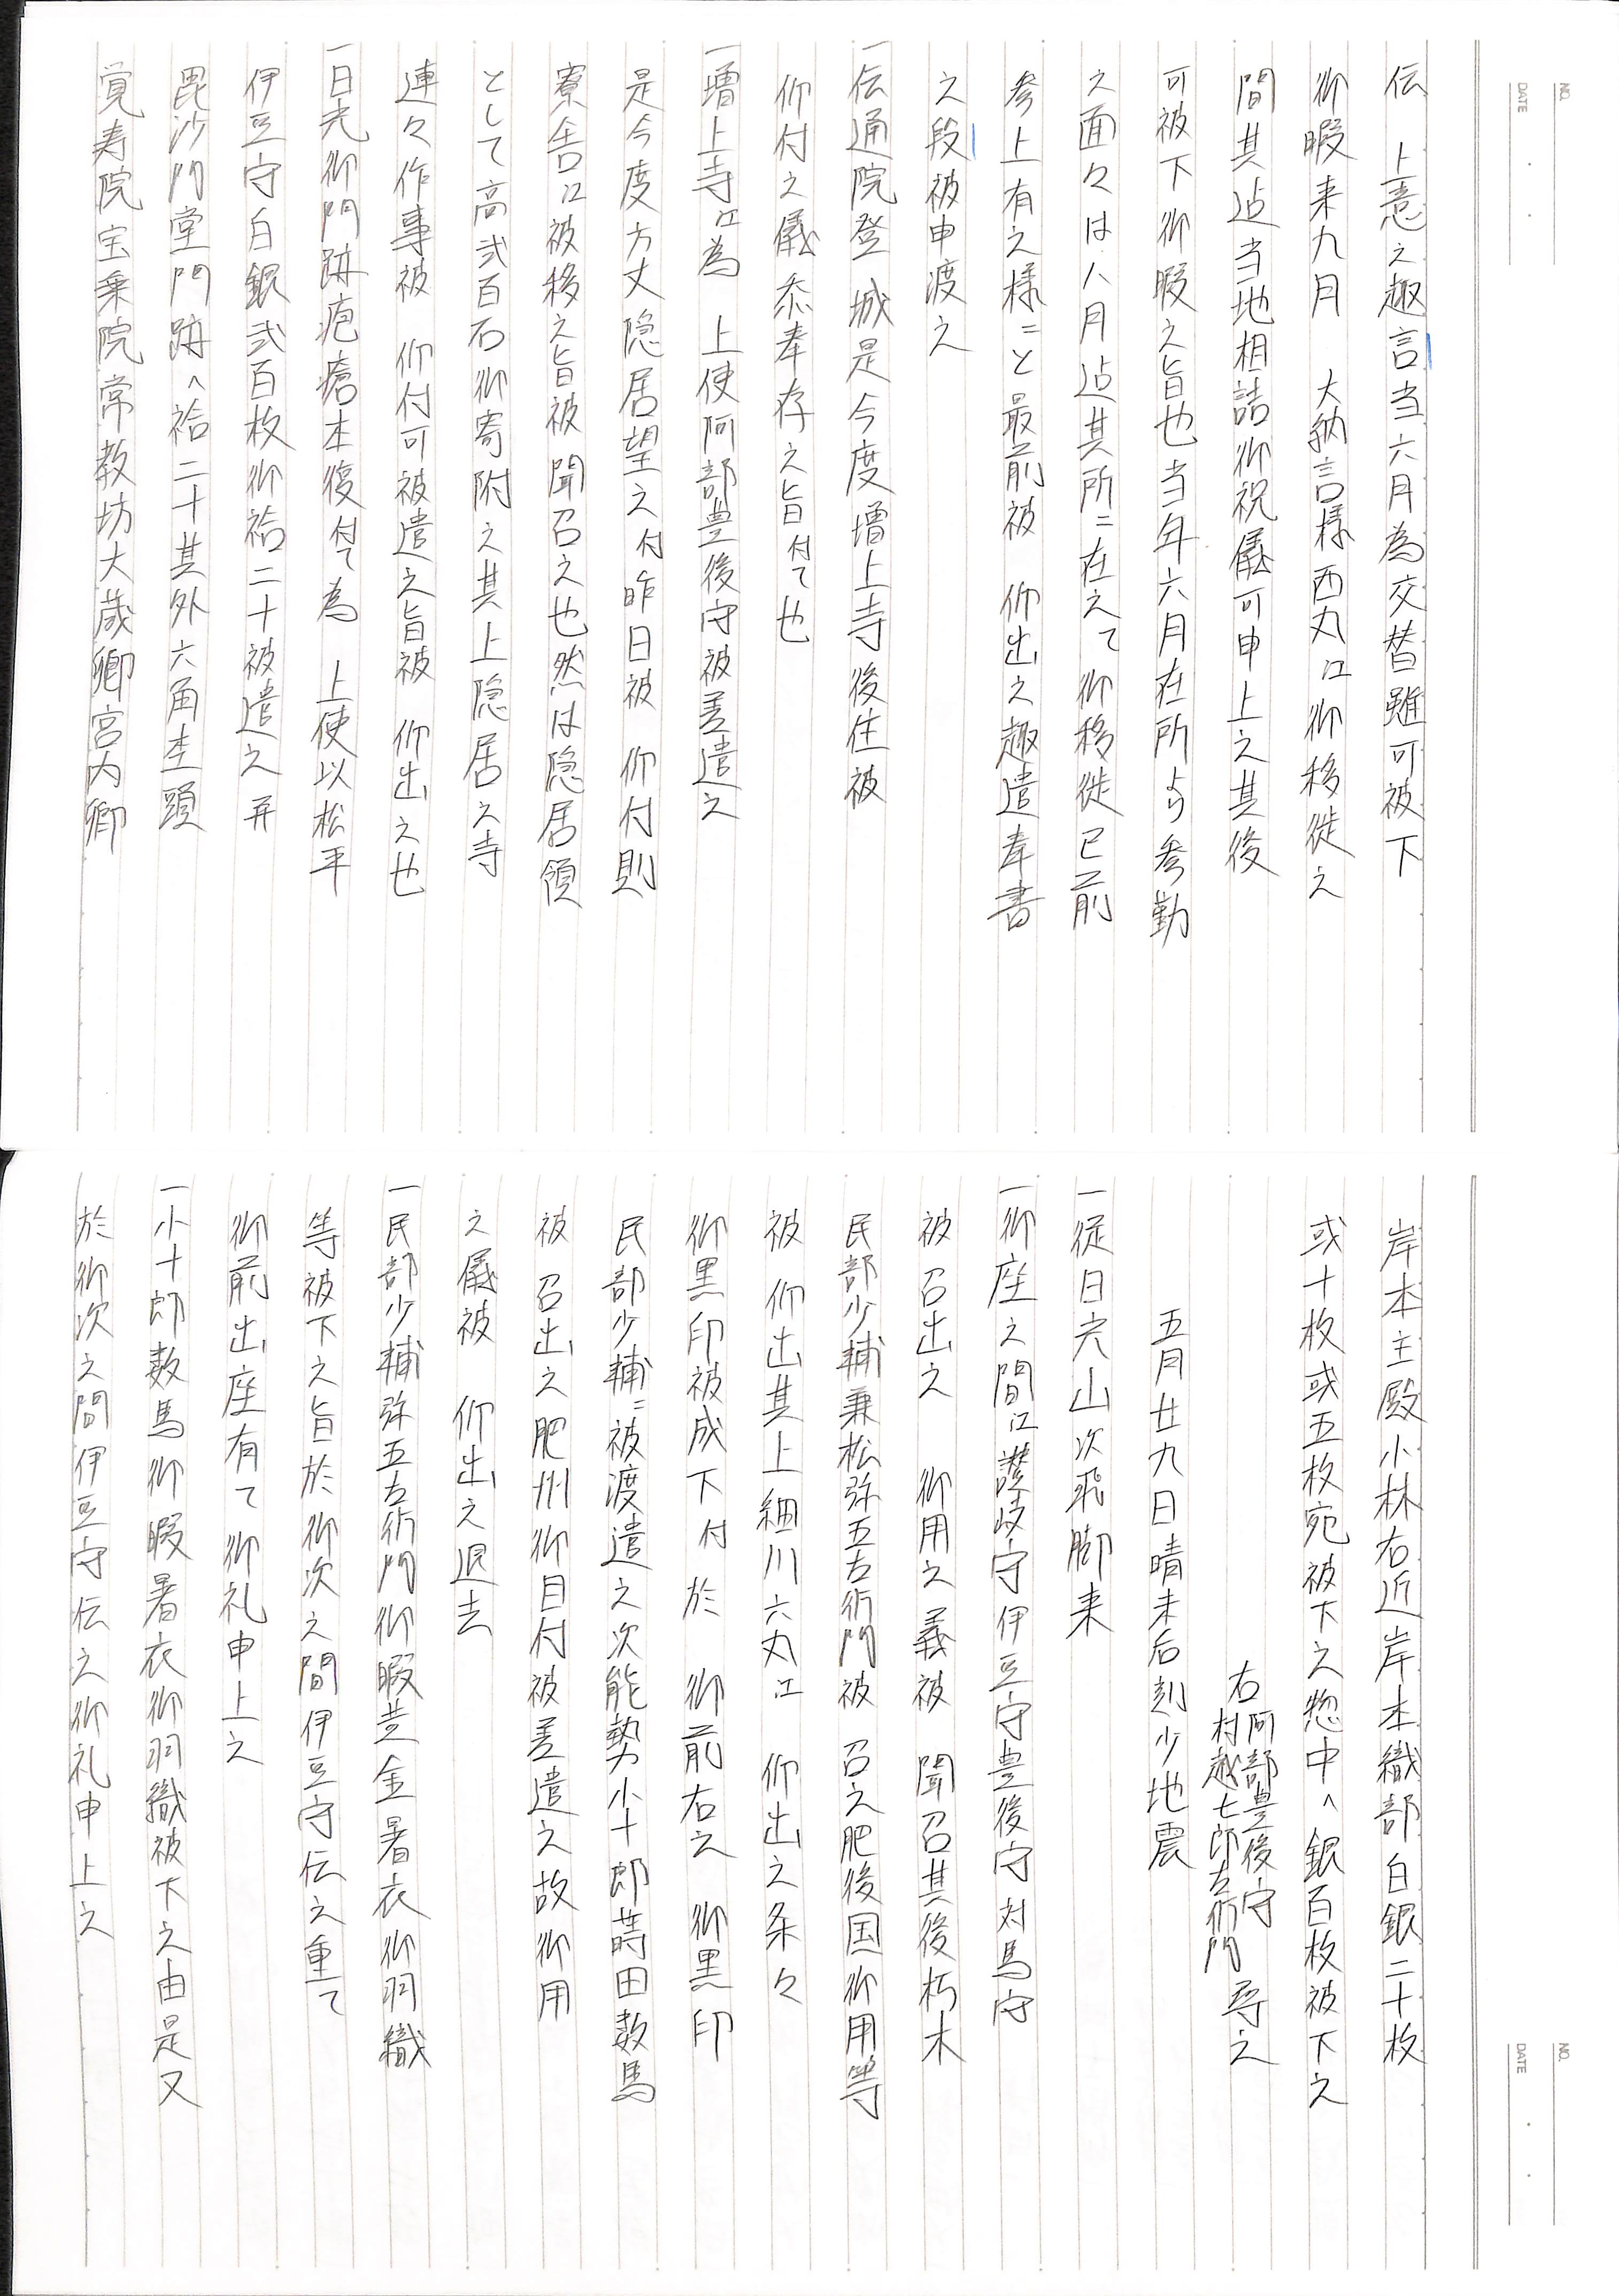 NO.
DATE
伝　上意之趣言当六月為交替雖可被下
御暇来九月　大納言様西丸江御移徙之
間其迠当地相詰御祝儀可申上之其後
可被下御暇之旨也当年六月在所ゟ参勤
之面々は八月迠其所ニ在之て御移徙已前
参上有之様ニと最前被　仰出之趣遣奉書
之段被申渡之
一伝通院登　城是今度増上寺後住被
仰付之儀忝奉存之旨付て也
一増上寺江為　上使阿部豊後守被差遣之
是今度方丈隠居望之付昨日被　仰付則
寮舎江被移之旨被　聞召之也然は隠居領
として高弐百石御寄附之其上隠居之寺
連々作事被　仰付可被遣之旨被　仰出之也
一日光御門跡疱瘡本復付て為　上使以松平
伊豆守白銀弐百枚御袷二十被遣之并
毘沙門堂門跡へ袷二十其外六角主頭
覚寿院宝乗院常教坊大蔵卿宮内卿
NO.
DATE
岸本主殿小林右近岸本織部白銀二十枚
或十枚或五枚宛被下之惣中へ銀百枚被下之
右阿部豊後守
村越七郎左衛門　尋之
五月廿九日晴未后刻少地震
一従日光山次飛脚来
一御座之間江讃岐守伊豆守豊後守対馬守
被　召出之　御用之義被　聞召其後朽木
民部少輔兼松弥五左衛門被　召之肥後国御用等
被　仰出其上細川六丸江　仰出之条々
御黒印被成下付於　御前右之　御黒印
民部少輔ニ被渡遣之次能勢小十郎蒔田数馬
被　召出之肥州御目付被差遣之故御用
之儀被　仰出之退去
一民部少輔弥五左衛門御暇黄金暑衣御羽織
等被下之旨於御次之間伊豆守伝之重て
御前出座有て御礼申上之
一小十郎数馬御暇暑衣御羽織被下之由是又
於御次之間伊豆守伝之御礼申上之